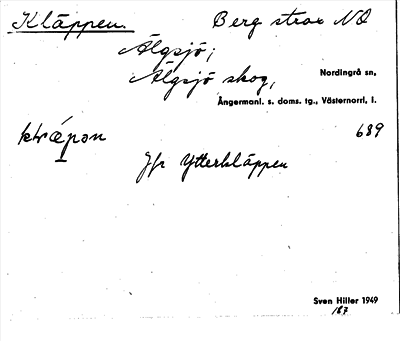 Kläppen. Berg strax NO
Älgsjö;
Älgsjö skog,
Nordingrå sn,
Ångermanl. s. doms. tg., Västernorrl, l.
689
Jfr Ytterkläppen
Sven Hiller 1949
187